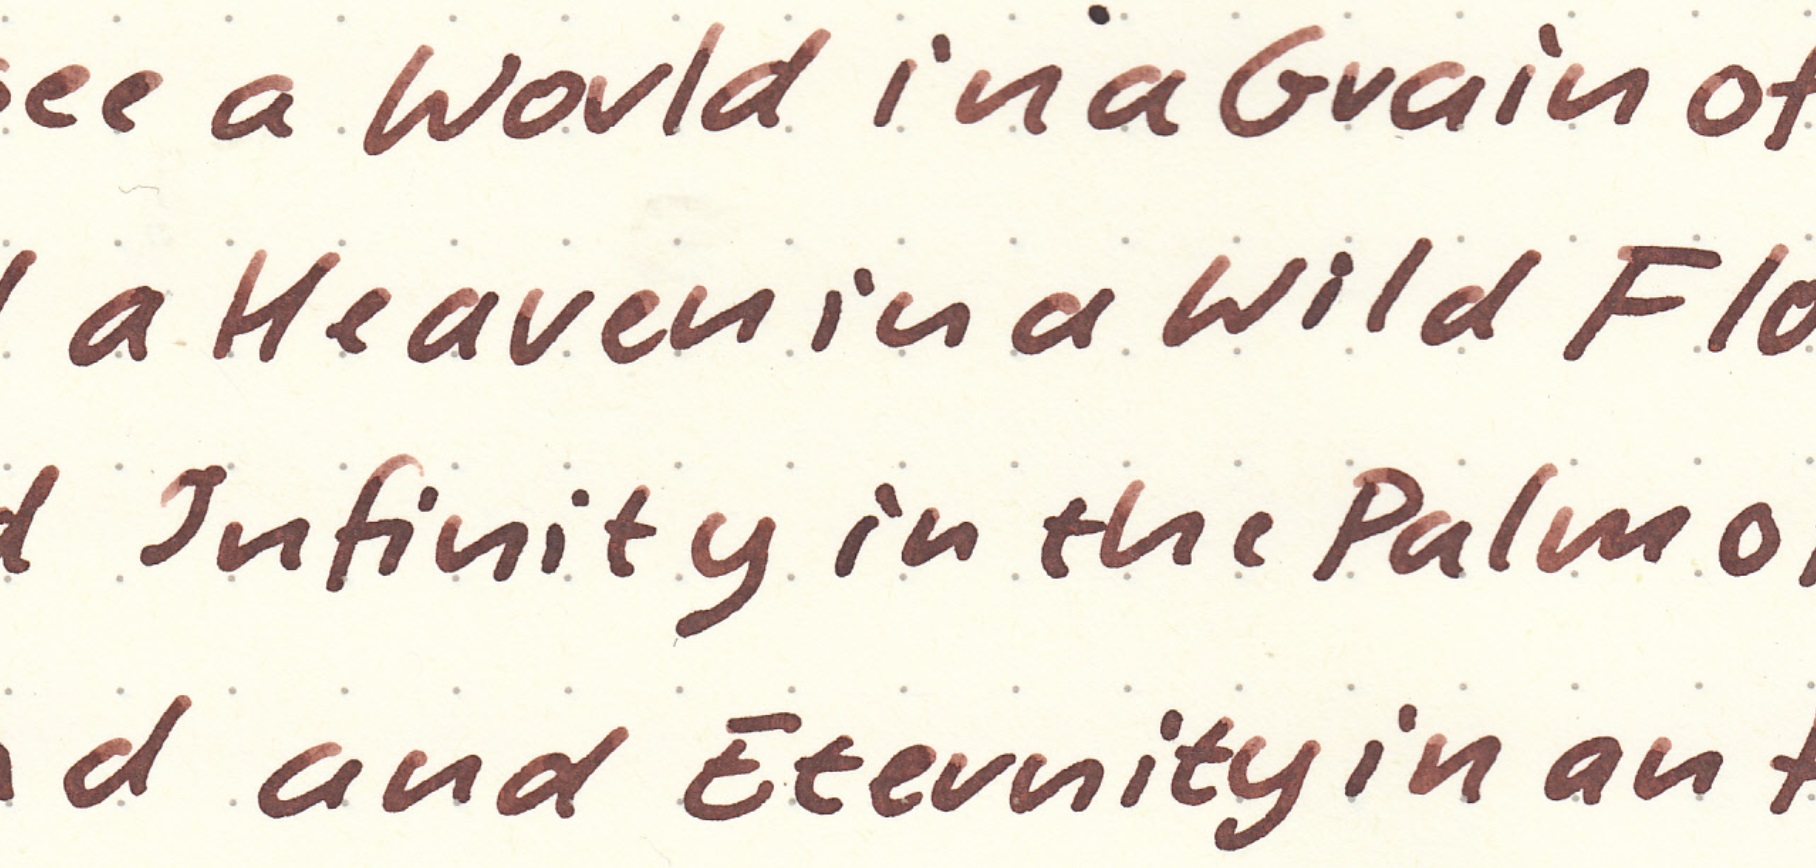 see a World in a Grain of
a Heaven in a Wild Flo
d Infinity in the Palm of
nd and Eternity in an